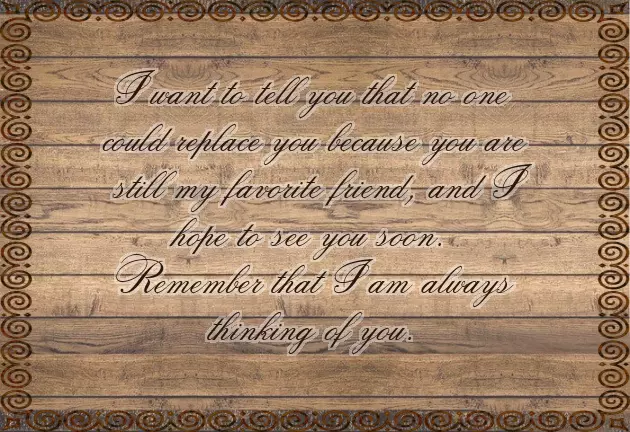 I want to tell you that no one
could replace you because you are
still my favorite friend, and I
hope to see you soon.
Remember that I am always
thinking of you.